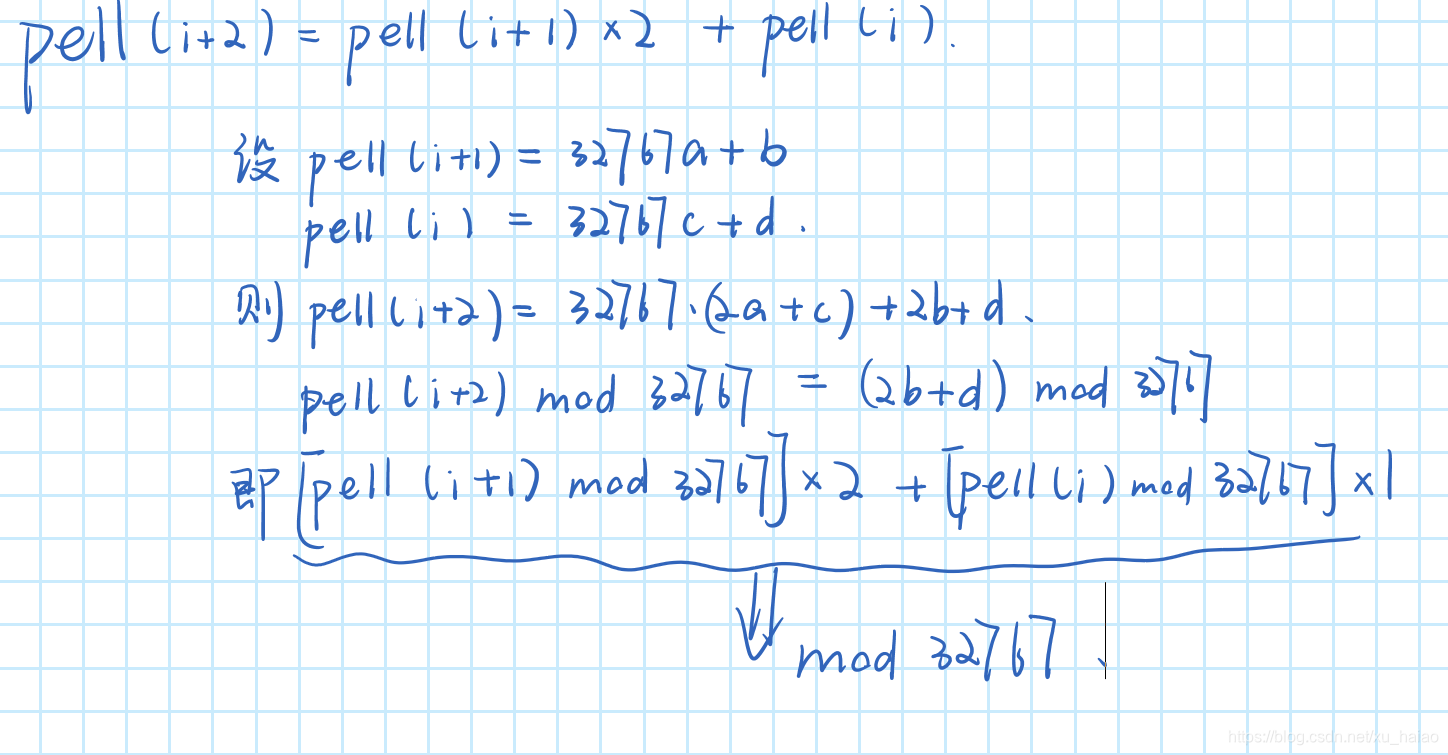 pell (i+2) = pell (i+1) ×2 + pell (i).
设 pell (i+1) = 32767a + b
pell (i) = 32767c + d.
则 pell (i+2) = 32767·(2a+c) + 2b+d.
pell (i+2) mod 32767 = (2b+d) mod 32767
即 [pell (i+1) mod 32767] × 2 + [pell (i) mod 32767] × 1
mod 32767.
https://blog.csdn.net/xu_haiao